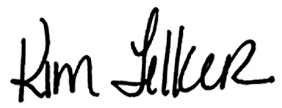 Kim Felker